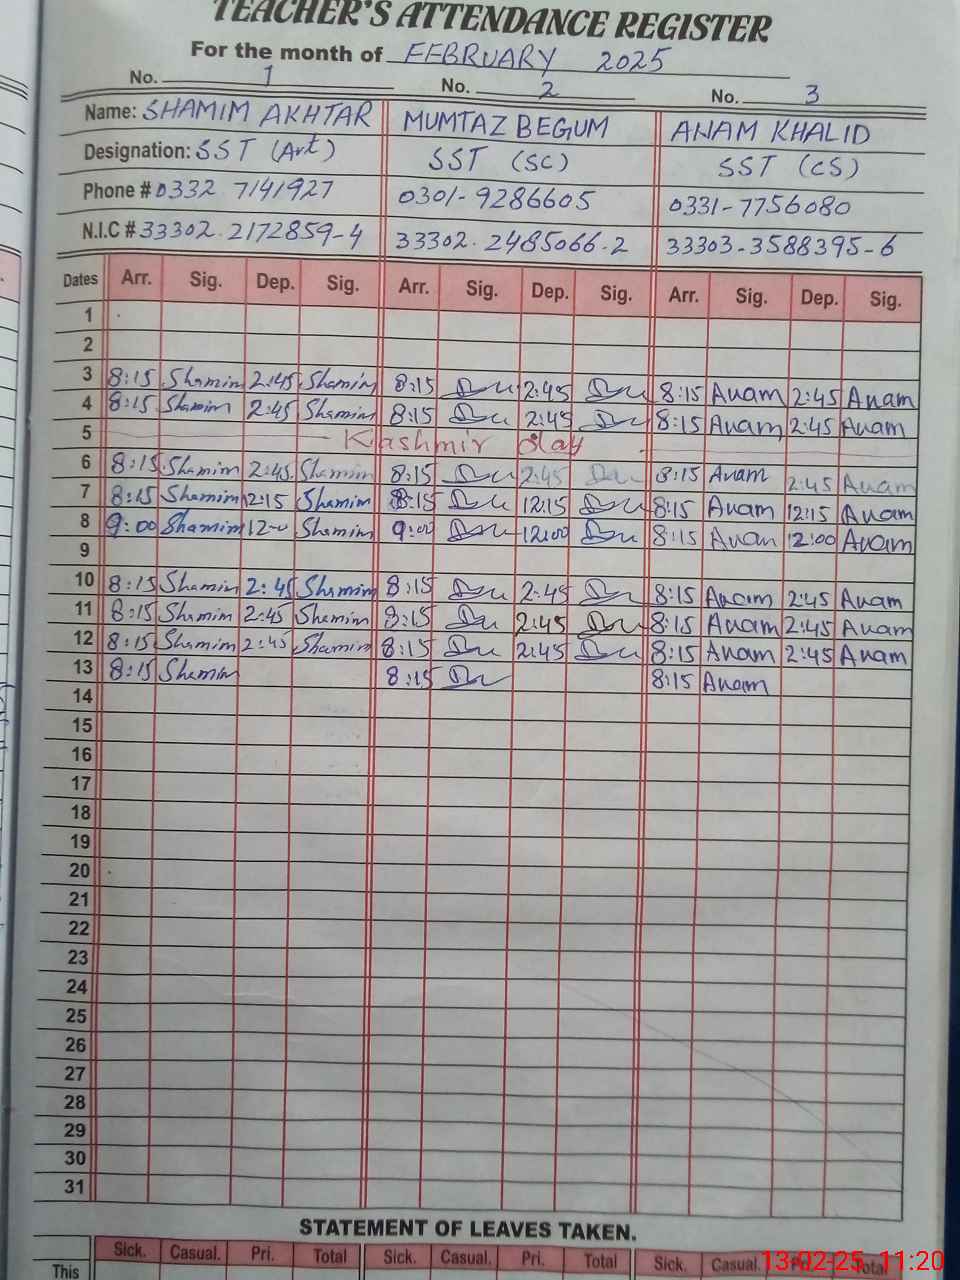 TEACHER'S ATTENDANCE REGISTER
For the month of FEBRUARY 2025
No. 1 No. 2 No. 3
Name: SHAMIM AKHTAR MUMTAZ BEGUM ANAM KHALID
Designation: SST (Art) SST (SC) SST (CS)
Phone # 0332 7141927 0301-9286605 0331-7756080
N.I.C # 33302.2172859-4 33302.2485066.2 33303-3588395-6
Dates Arr. Sig. Dep. Sig. Arr. Sig. Dep. Sig. Arr. Sig. Dep. Sig.
1
2
3 8:15 Shamim 2:45 Shamim 8:15 2:45 8:15 Anam 2:45 Anam
4 8:15 Shamim 2:45 Shamim 8:15 2:45 8:15 Anam 2:45 Anam
5 Kashmir Day
6 8:15 Shamim 2:45 Shamim 8:15 2:45 8:15 Anam 2:45 Anam
7 8:15 Shamim 12:15 Shamim 8:15 12:15 8:15 Anam 12:15 Anam
8 9:00 Shamim 12-0 Shamim 9:00 12:00 8:15 Anam 12:00 Anam
9
10 8:15 Shamim 2:45 Shamim 8:15 2:45 8:15 Anam 2:45 Anam
11 8:15 Shamim 2:45 Shamim 8:15 2:45 8:15 Anam 2:45 Anam
12 8:15 Shamim 2:45 Shamim 8:15 2:45 8:15 Anam 2:45 Anam
13 8:15 Shamim 8:15 8:15 Anam
14
15
16
17
18
19
20
21
22
23
24
25
26
27
28
29
30
31
STATEMENT OF LEAVES TAKEN.
Sick. Casual. Pri. Total Sick. Casual. Pri. Total Sick. Casual. Pri. Total
This
13-02-25 11:20